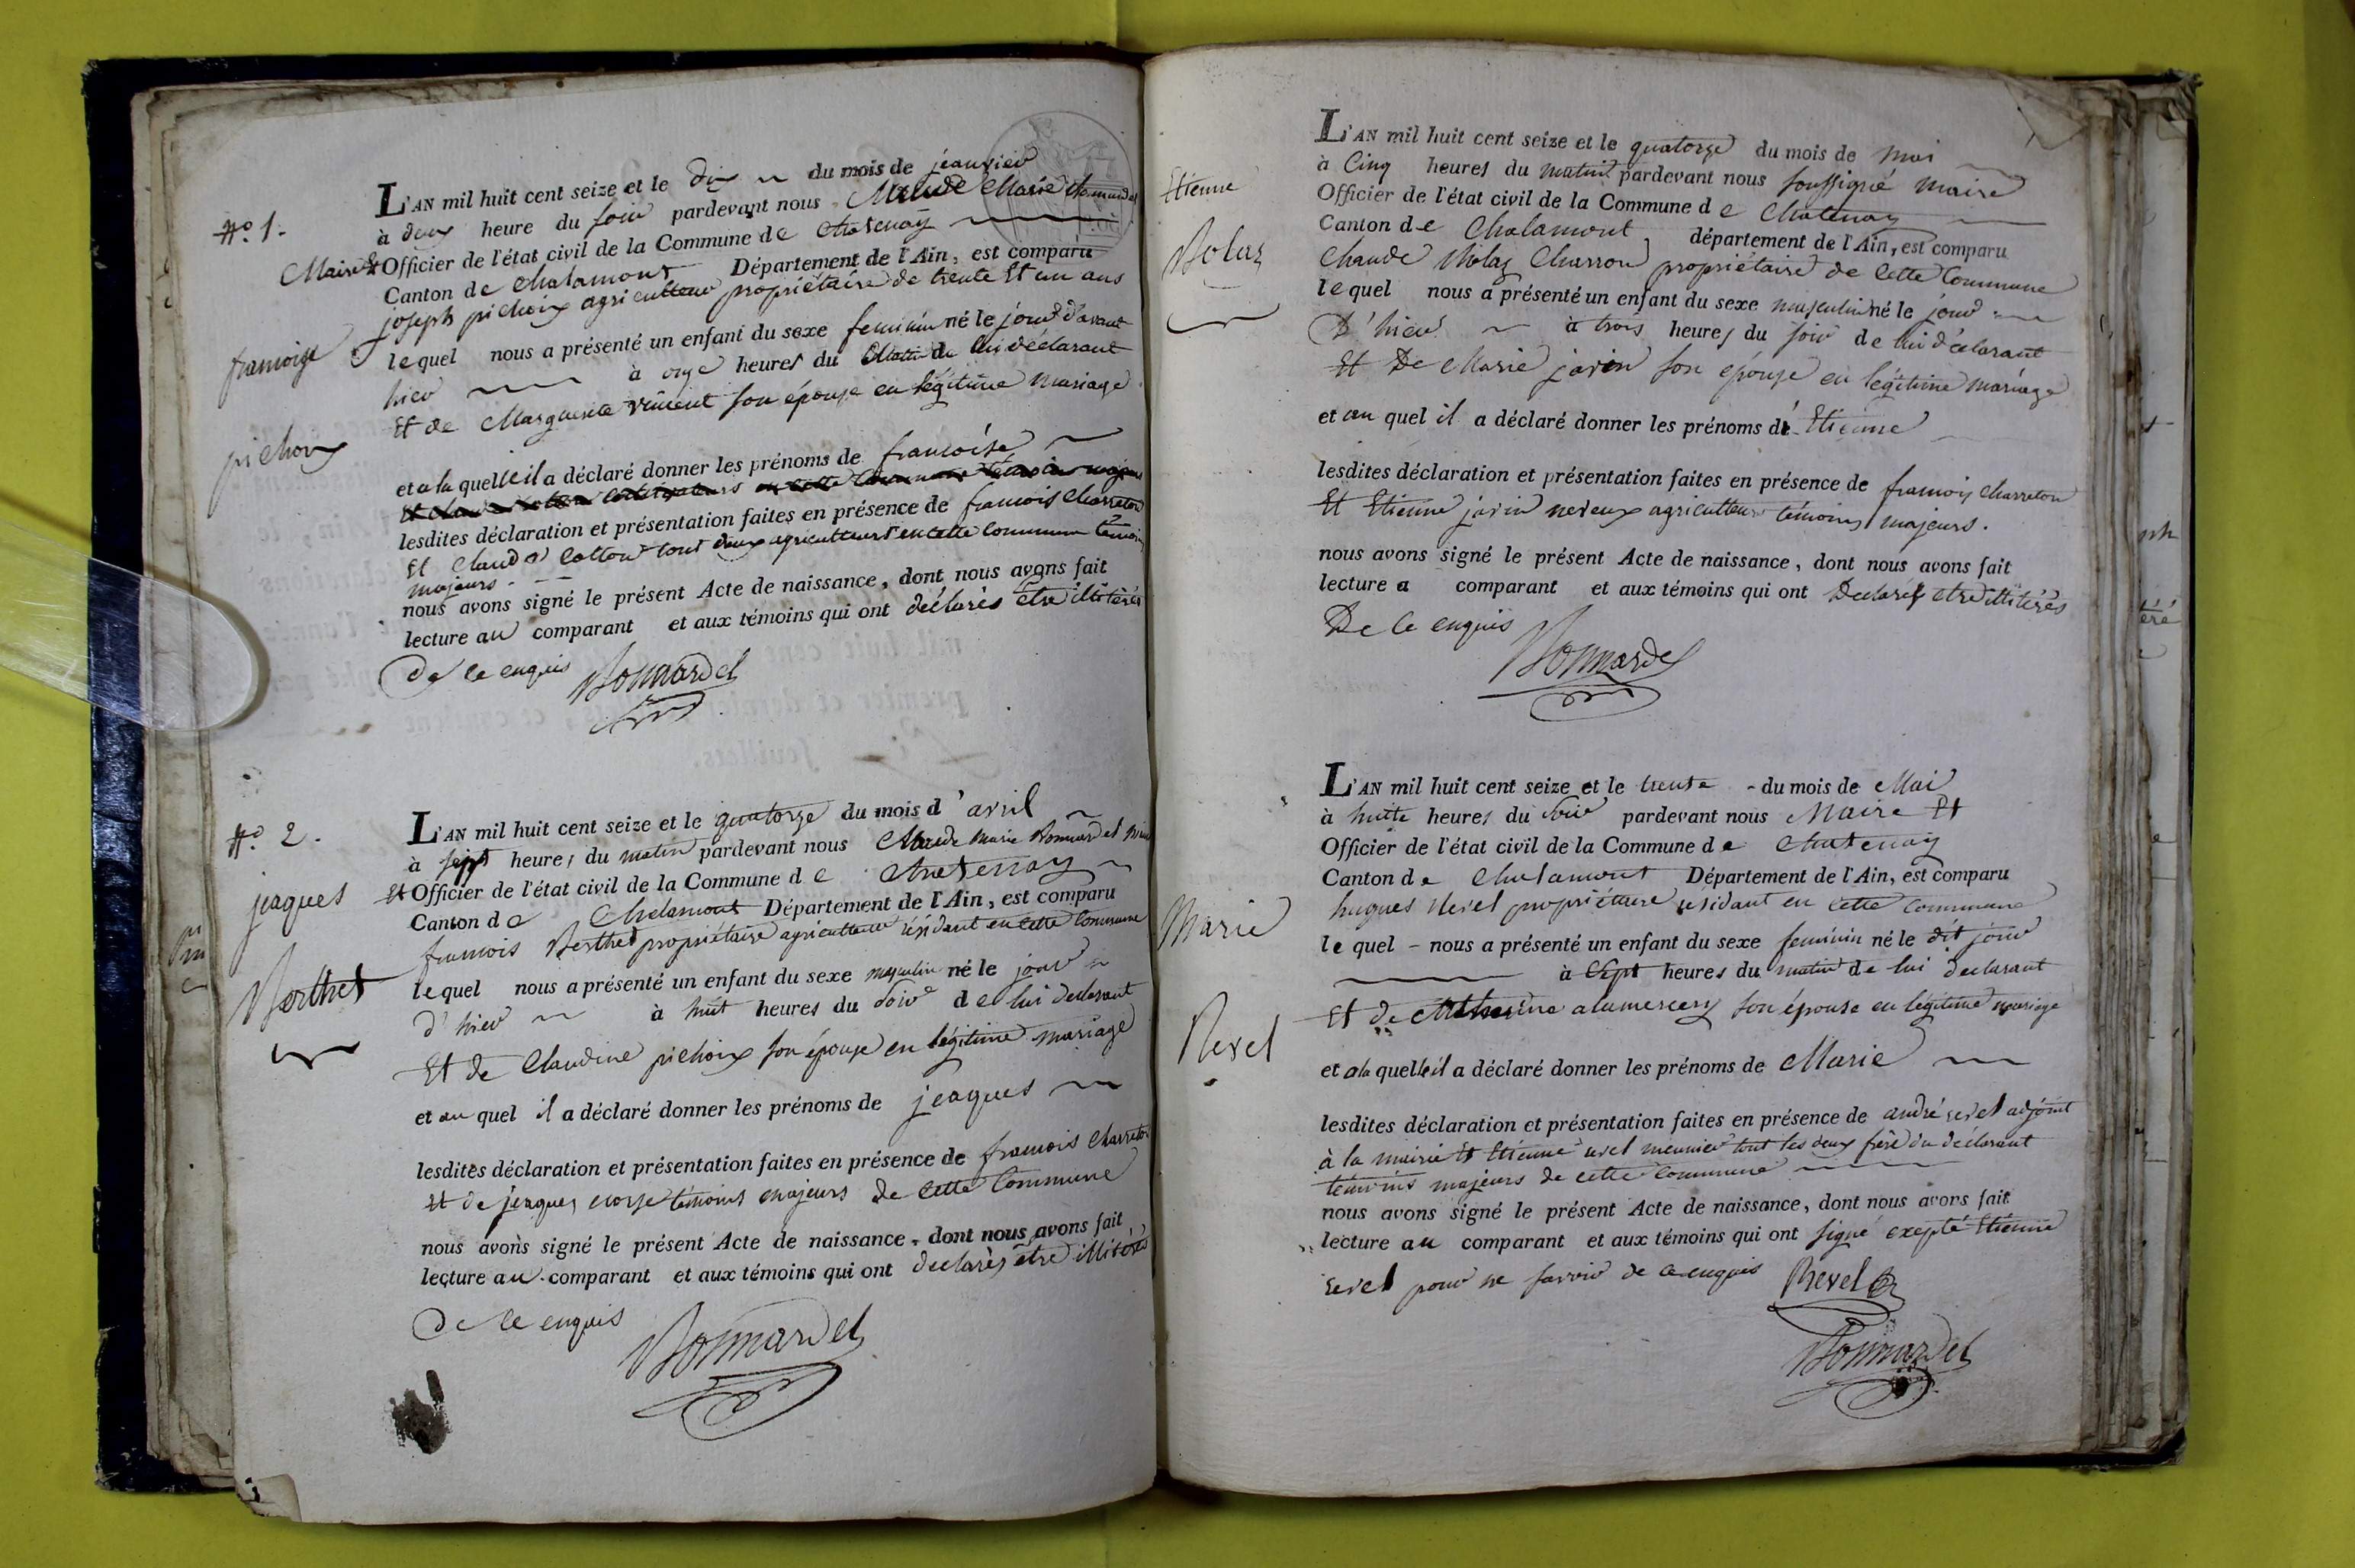 N.o 1.
françoise
pichoix
L'AN mil huit cent seize et le dix du mois de jeanvier
à deux heure du soir pardevant nous Claude Marie Bonnardel
Maire Et Officier de l'état civil de la Commune de Chatenay
Canton de Chalamont Département de l'Ain, est comparu
joseph pichoix agriculteur propriétaire de trente Et un ans
lequel nous a présenté un enfant du sexe feminin né le jour d'avant
hier à onze heures du Matin de lui déclarant
Et de Marguerite vincent son épouse en légitime mariage
et a la quelle il a déclaré donner les prénoms de francoise
lesdites déclaration et présentation faites en présence de francois Charreton
Et Claude Cotton tout deux agriculteurs en cette Commune témoins
majeurs.
nous avons signé le présent Acte de naissance, dont nous avons fait
lecture au comparant et aux témoins qui ont déclarés être illitérés
de ce enquis Bonnardel
N.o 2.
jeaques
Berthet
L'AN mil huit cent seize et le quatorze du mois d'avril
à sept heures du matin pardevant nous Claude Marie Bonnardel
Et Officier de l'état civil de la Commune de Chatenay
Canton de Chalamont Département de l'Ain, est comparu
francois Berthet propriétaire agriculteur résidant en cette Commune
lequel nous a présenté un enfant du sexe masculin né le jour
d'hier à huit heures du soir de lui declarant
Et de Claudine pichoix son épouse en légitime mariage
et au quel il a déclaré donner les prénoms de jeaques
lesdites déclaration et présentation faites en présence de francois Charreton
Et de jeaques témoins majeurs de cette Commune
nous avons signé le présent Acte de naissance, dont nous avons fait
lecture au comparant et aux témoins qui ont declarés être illitérés
de ce enquis
Bonnardel
Etienne
Bolaz
L'AN mil huit cent seize et le quatorze du mois de Mai
à Cinq heures du matin pardevant nous soussigné maire
Officier de l'état civil de la Commune de Chatenay
Canton de Chalamont, département de l'Ain, est comparu
Claude Bolaz Charron propriétaire de cette Commune
lequel nous a présenté un enfant du sexe masculin né le jour
D'hier à trois heures du soir de lui déclarant
Et De Marie jarin son épouse en légitime mariage
et au quel il a déclaré donner les prénoms de Etienne
lesdites déclaration et présentation faites en présence de francois Charreton
Et Etienne jarin neveux agriculteur témoins majeurs.
nous avons signé le présent Acte de naissance, dont nous avons fait
lecture a comparant et aux témoins qui ont Declarés etre illitérés
De ce enquis
Bonnardel
Marie
Revel
L'AN mil huit cent seize et le trente du mois de Mai
à huite heures du Soir pardevant nous Maire Et
Officier de l'état civil de la Commune de Chatenay
Canton de Chalamont Département de l'Ain, est comparu
hugues Revel propriétaire résidant en cette Commune
lequel nous a présenté un enfant du sexe feminin né le dit jour
à Sept heures du matin de lui declarant
Et de son épouse en légitime mariage
et a la quelle il a déclaré donner les prénoms de Marie
lesdites déclaration et présentation faites en présence de andré revel adjoint
à la mairie Et Etienne revel meunier tout les deux frère du déclarant
témoins majeurs de cette Commune
nous avons signé le présent Acte de naissance, dont nous avons fait
lecture au comparant et aux témoins qui ont signé exepté Etienne
revel pour ne savoir de ce enquis Revel
Bonnardel